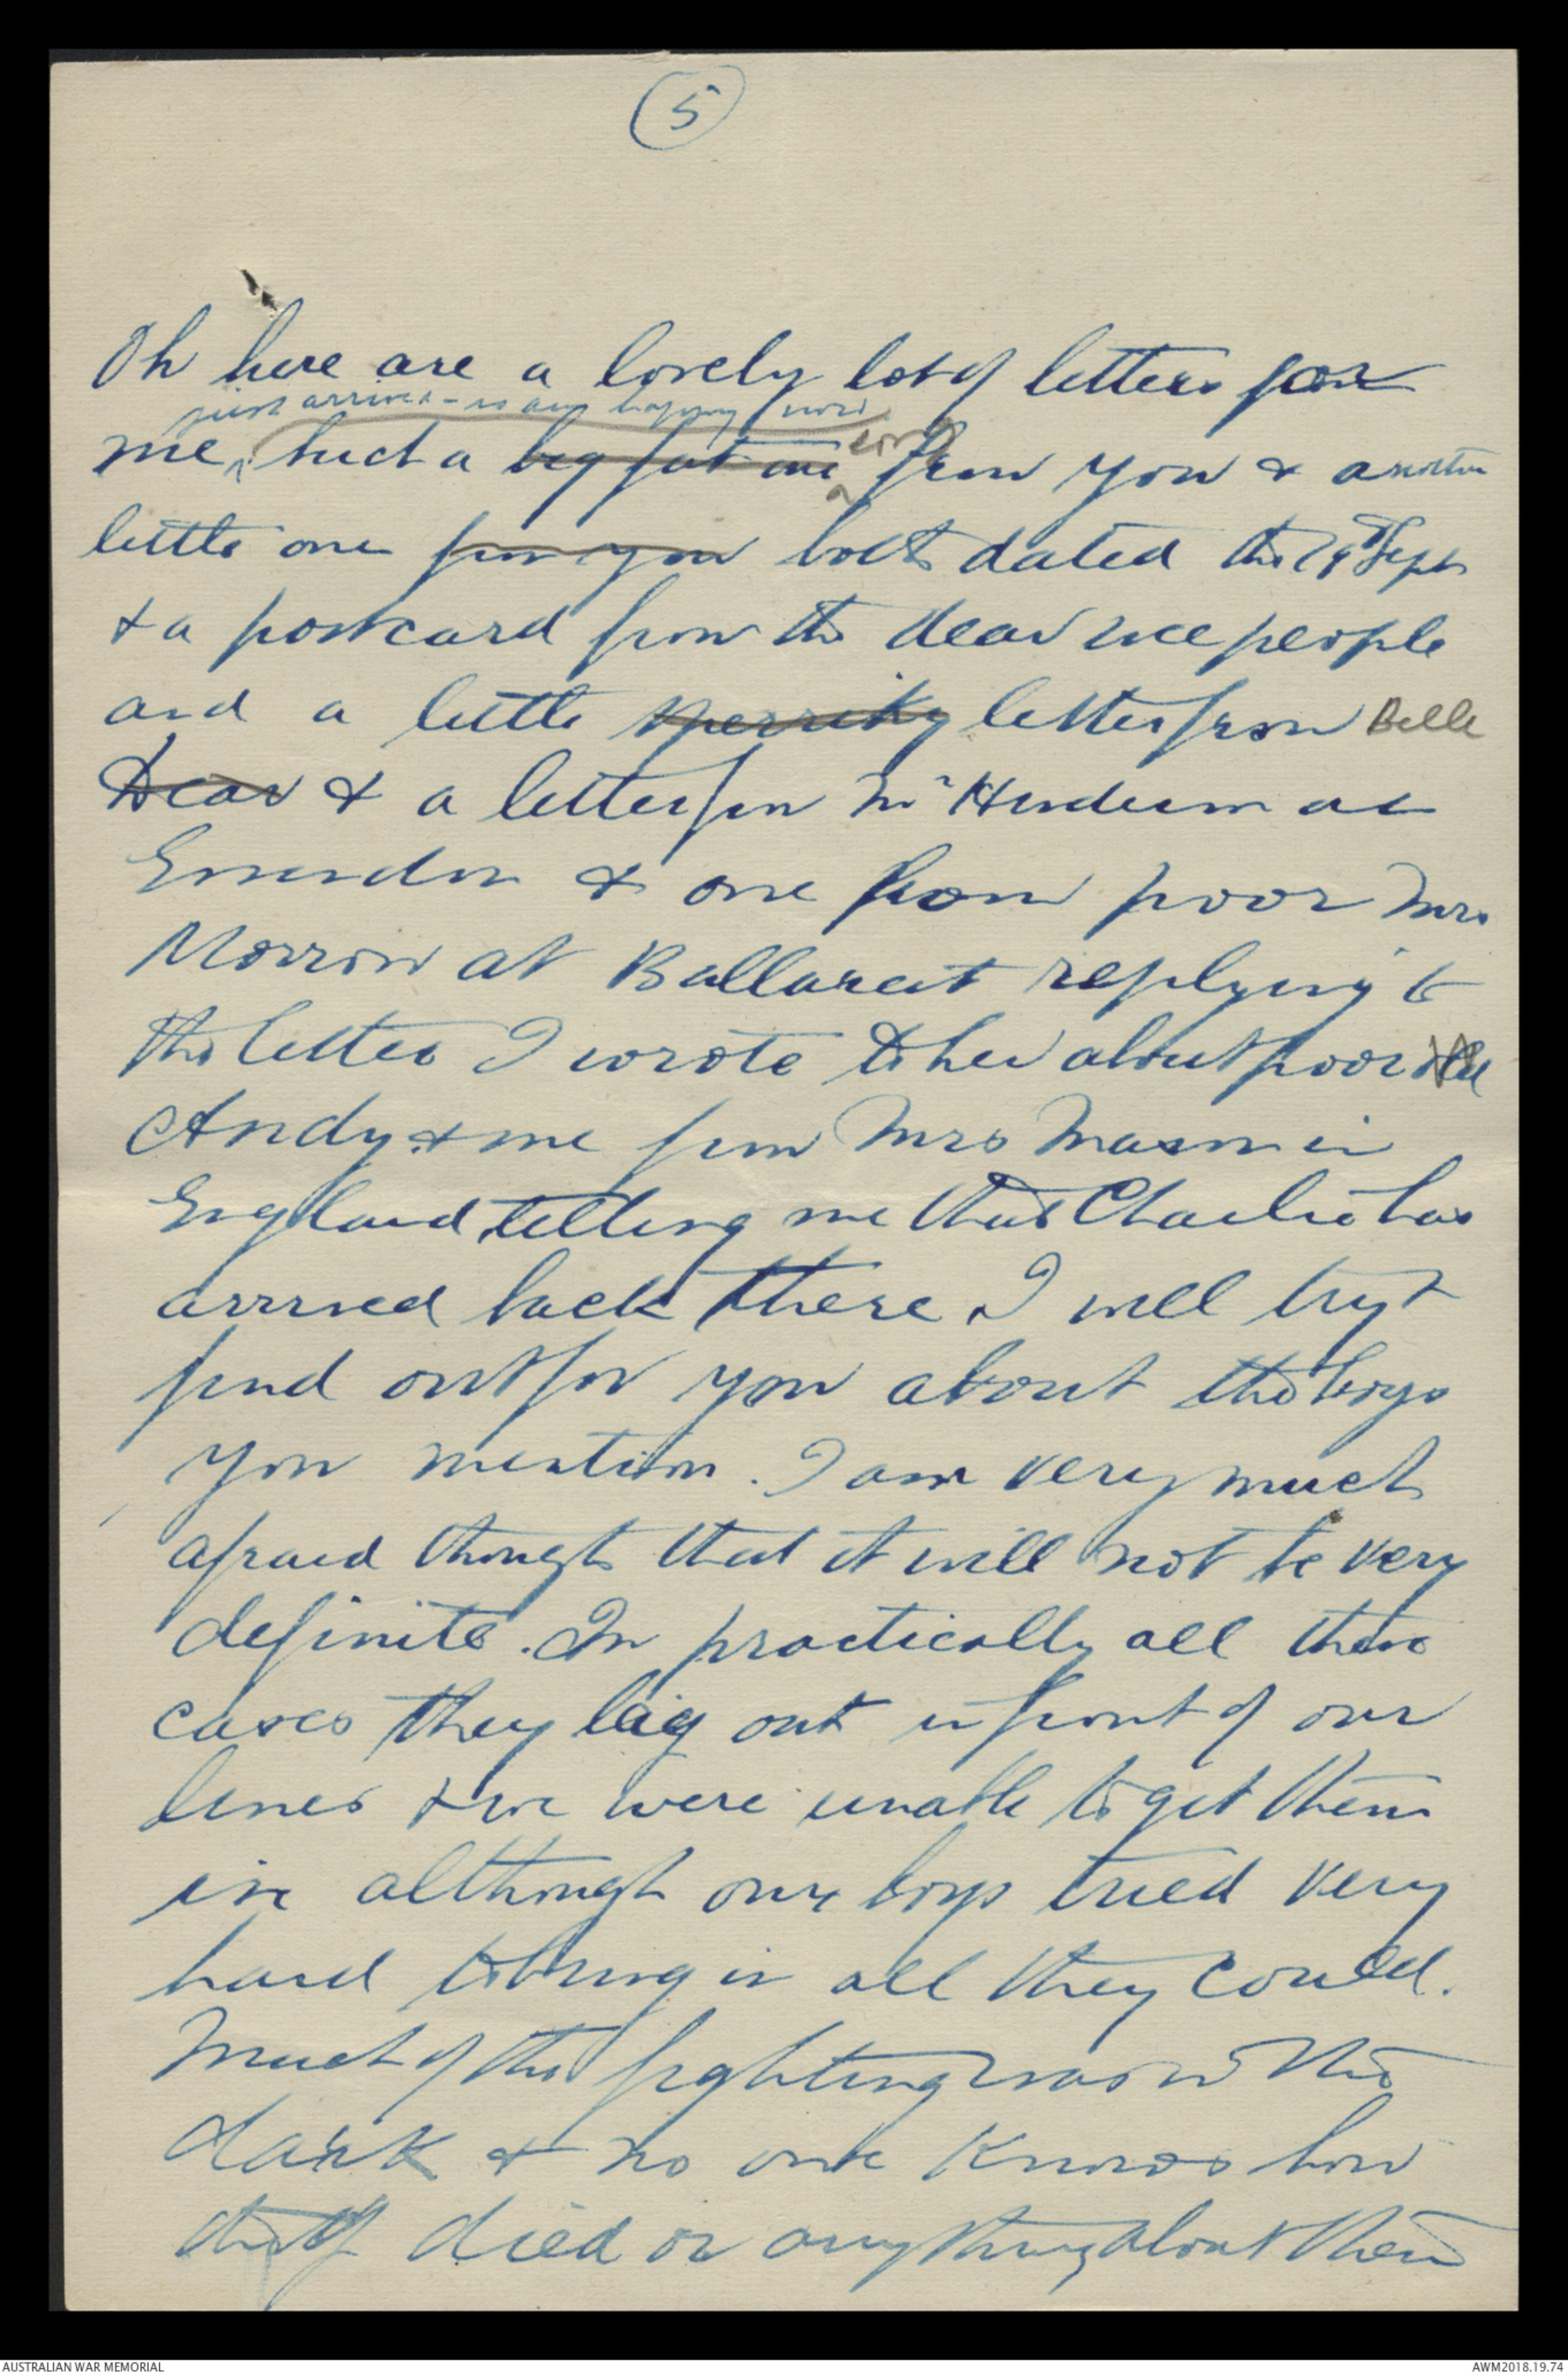 (5)
Oh here are a lovely lot of letters for
just arrived - so am happy now
me, such a big fat one from you & another
little one from you both dated the 19th Sept
& a postcard from the dear wee people
and a little letter from Belle
Dear & a letter from Mr Henderson at
Essendon & one from poor Mrs
Morrow at Ballarat replying to
the letter I wrote to her about poor
Andy & one from Mrs Mason in
England telling me that Charlie has
arrived back there. I will try &
find out for you about the boys
you mention. I am very much
afraid though that it will not be very
definite. In practically all these
cases they lay out in front of our
lines & we were unable to get them
in although our boys tried very
hard to bring in all they could.
Much of the fighting was in the
dark & no one knows how
they died or anything about them
AUSTRALIAN WAR MEMORIAL
AWM2018.19.74